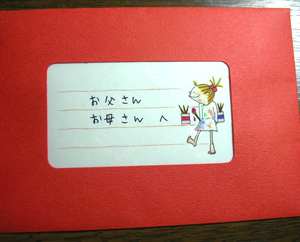 お父さん
お母さん へ